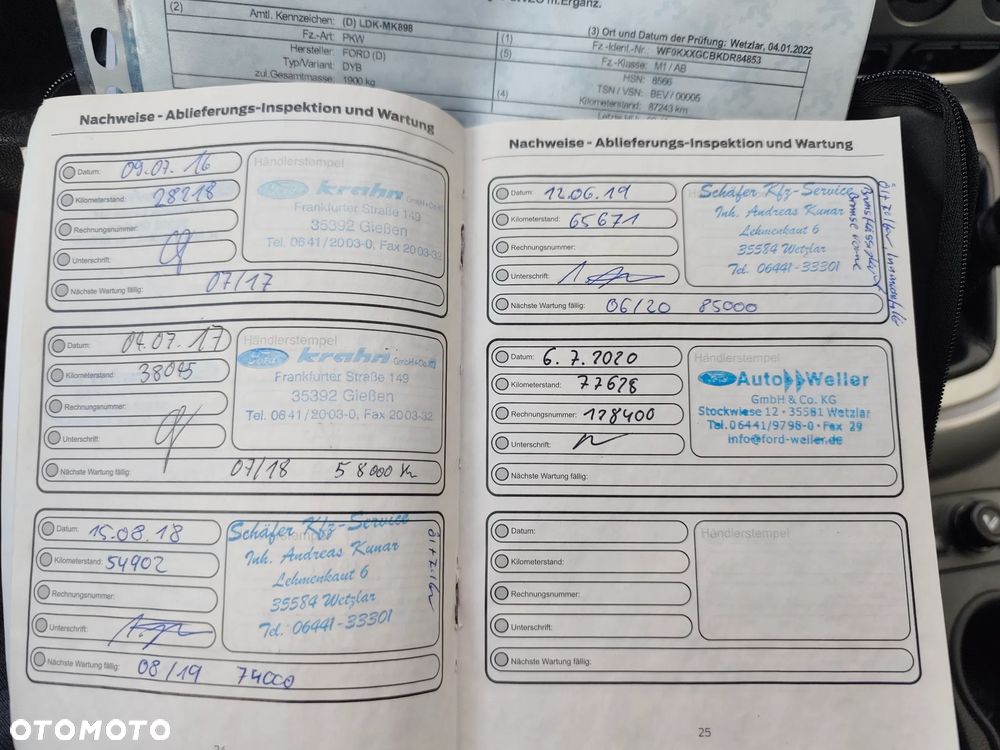 (2)
Amtl. Kennzeichen: (D) LDK-MK898
Fz.-Art: PKW
Hersteller: FORD (D)
Typ/Variant: DYB
zul.Gesamtmasse: 1900 kg
(1)
(3) Ort und Datum der Prüfung: Wetzlar, 04.01.2022
(5)
Fz.-Ident.-Nr.: WF0KXXGCBKDR84853
Fz.-Klasse: M1 / AB
HSN: 8566
(4)
TSN / VSN: BEV / 00005
Kilometerstand: 87243 km
Nachweise - Ablieferungs-Inspektion und Wartung
Datum: 09.07.16
Kilometerstand: 28218
Rechnungsnummer:
Unterschrift:
Nächste Wartung fällig: 07/17
Händlerstempel
Ford krahn GmbH+Co.KG
Frankfurter Straße 149
35392 Gießen
Tel. 06 41 / 20 03-0, Fax 20 03-32
Datum: 04.07.17
Kilometerstand: 38095
Rechnungsnummer:
Unterschrift:
Nächste Wartung fällig: 07/18 58000 Km
Händlerstempel
Ford krahn GmbH+Co.KG
Frankfurter Straße 149
35392 Gießen
Tel. 06 41 / 20 03-0, Fax 20 03-32
Datum: 15.08.18
Kilometerstand: 54902
Rechnungsnummer:
Unterschrift:
Nächste Wartung fällig: 08/19 74000
Schäfer Kfz-Service
Inh. Andreas Kunar
Lehmenkaut 6
35584 Wetzlar
Tel. 06441-33301
Nachweise - Ablieferungs-Inspektion und Wartung
Datum: 12.06.19
Kilometerstand: 65671
Rechnungsnummer:
Unterschrift:
Nächste Wartung fällig: 06/20 85000
Schäfer Kfz-Service
Inh. Andreas Kunar
Lehmenkaut 6
35584 Wetzlar
Tel. 06441-33301
Datum: 6.7.2020
Kilometerstand: 77628
Rechnungsnummer: 128400
Unterschrift:
Nächste Wartung fällig:
Händlerstempel
Ford Auto Weller
GmbH & Co. KG
Stockwiese 12 · 35581 Wetzlar
Tel. 06441/9798-0 · Fax 29
info@ford-weller.de
Datum:
Kilometerstand:
Rechnungsnummer:
Unterschrift:
Nächste Wartung fällig:
Händlerstempel
25
OTOMOTO